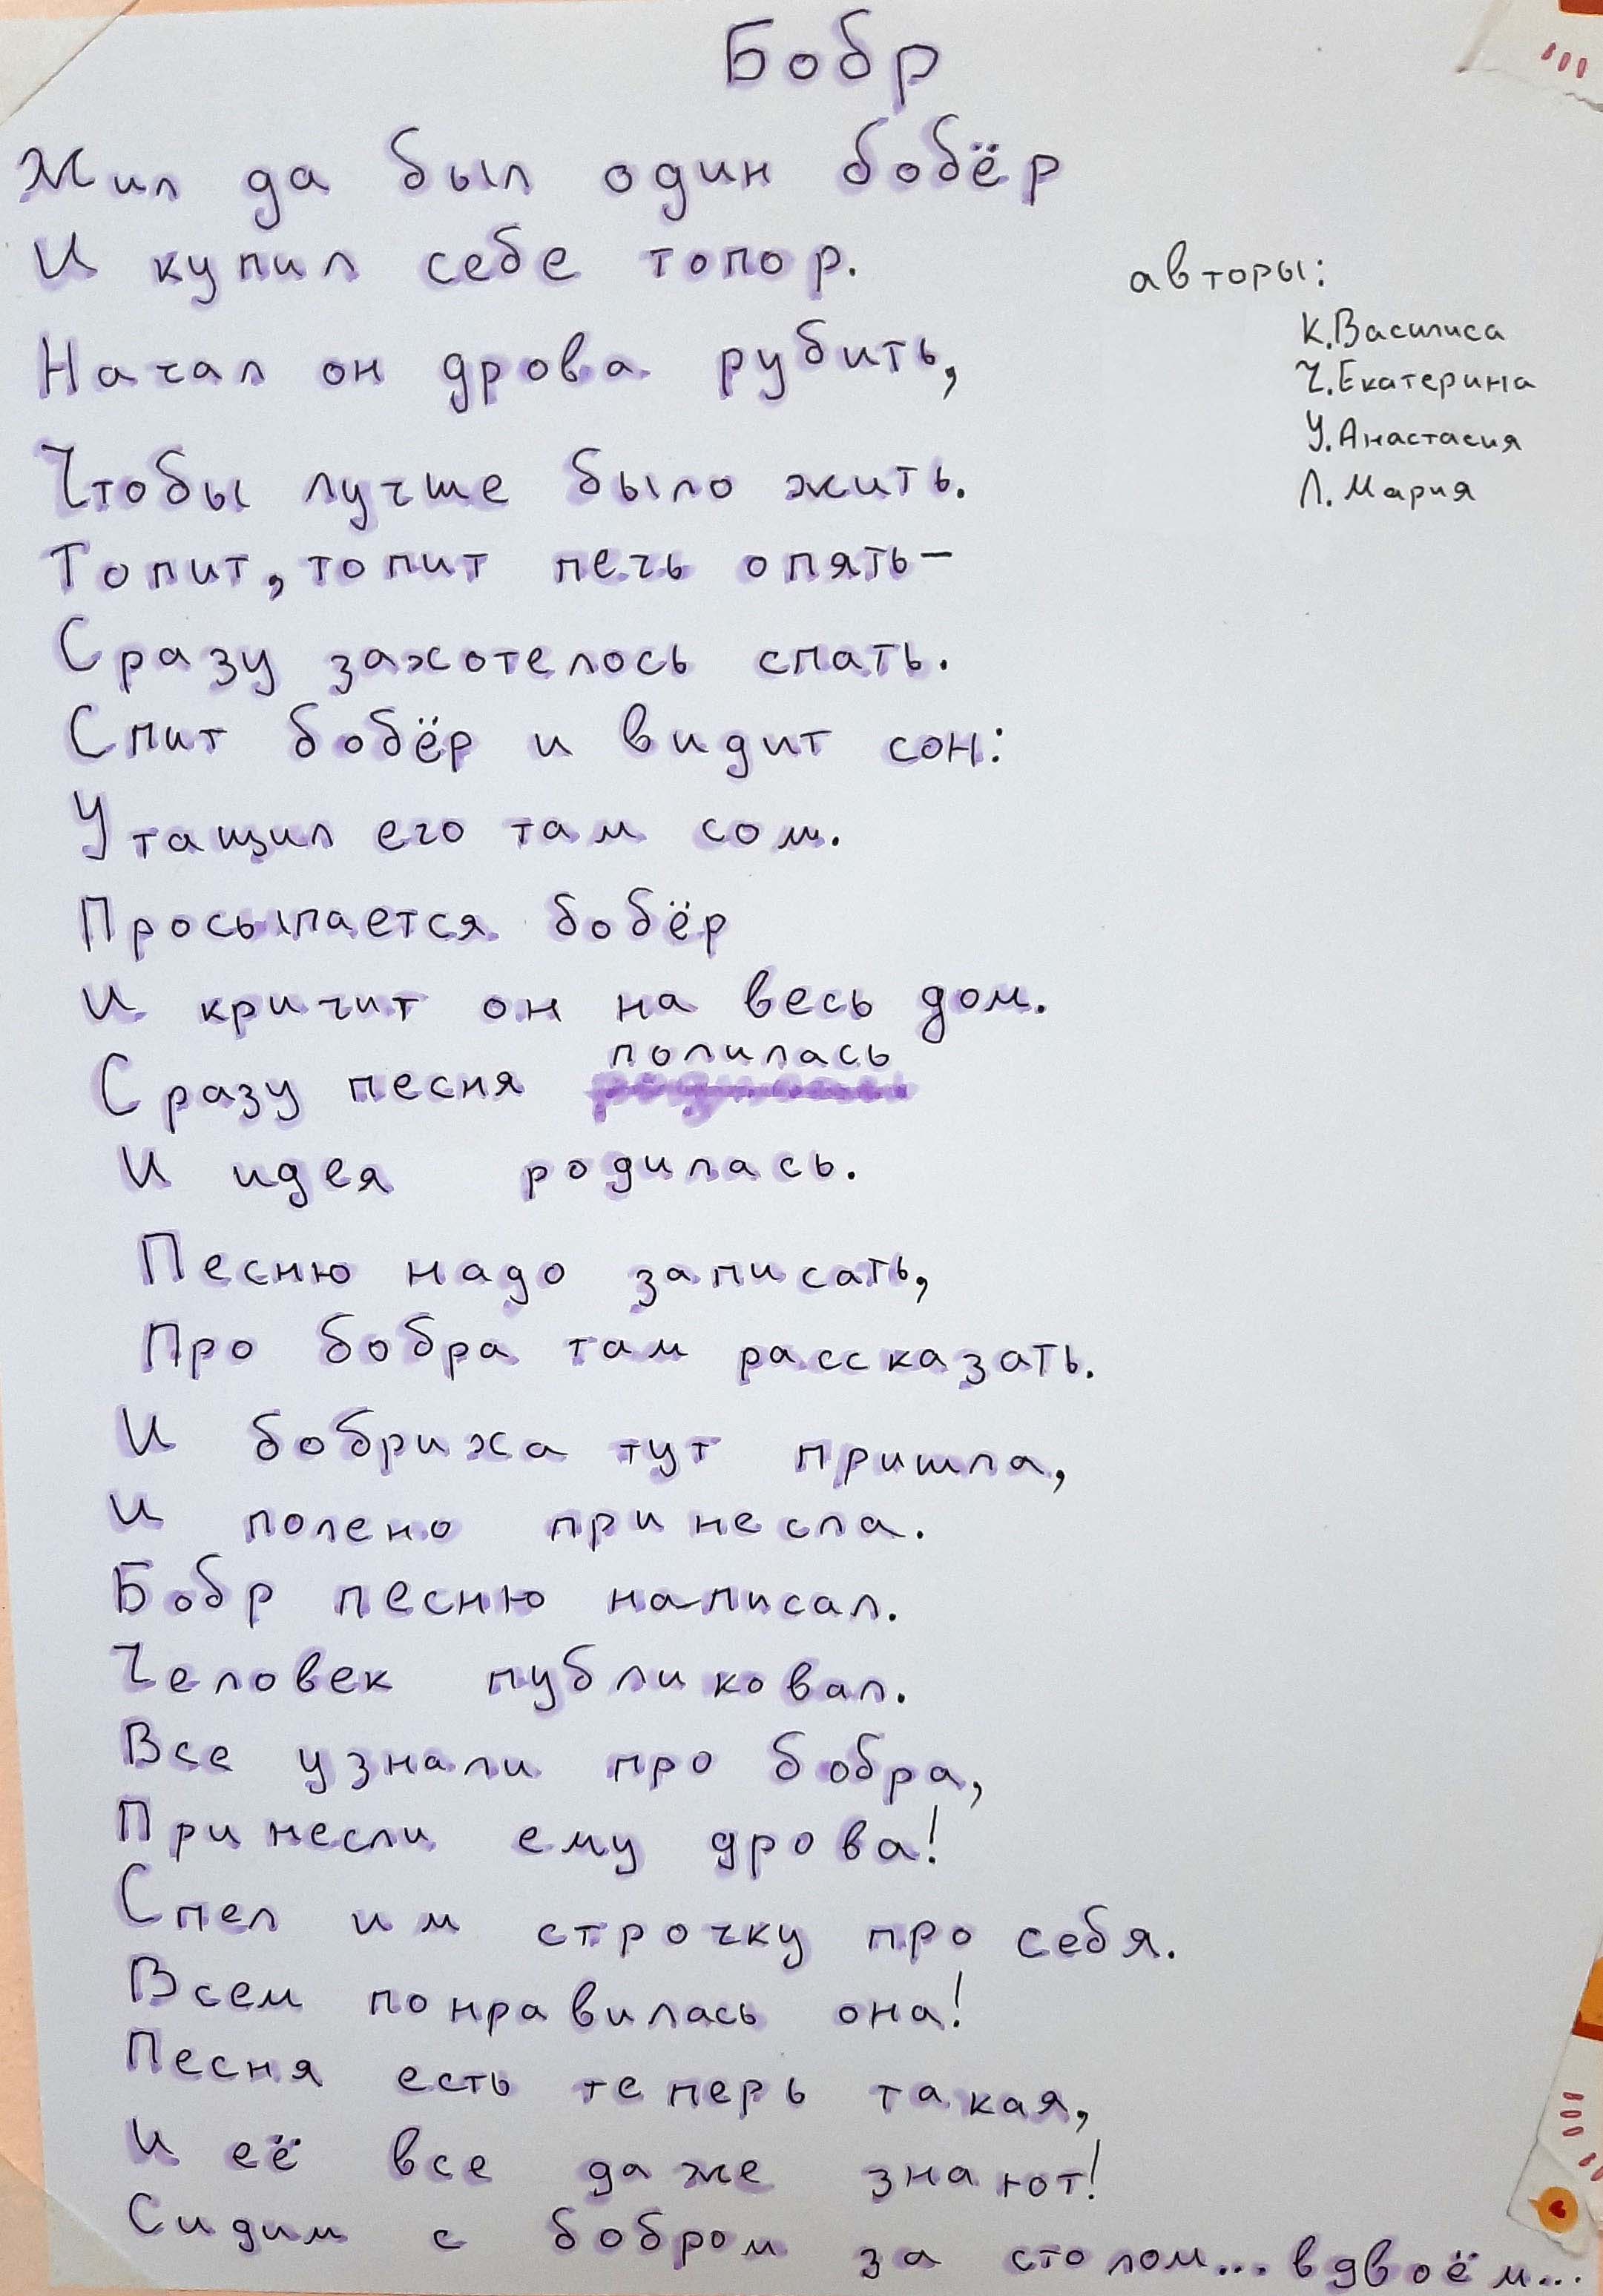 Бобр
Жил да был один бобёр
И купил себе топор.
авторы:
К.Василиса
Ч.Екатерина
У.Анастасия
Л.Мария
Начал он дрова рубить,
Чтобы лучше было жить.
Топит, топит печь опять-
Сразу захотелось спать.
Спит бобёр и видит сон:
Утащил его там сом.
Просыпается бобёр
И кричит он на весь дом.
Сразу песня полилась
И идея родилась.
Песню надо записать,
Про бобра там рассказать.
И бобриха тут пришла,
И полено принесла.
Бобр песню написал.
Человек публиковал.
Все узнали про бобра,
Принесли ему дрова!
Спел им строчку про себя.
Всем понравилась она!
Песня есть теперь такая,
И её все даже знают!
Сидим с бобром за столом... вдвоём...